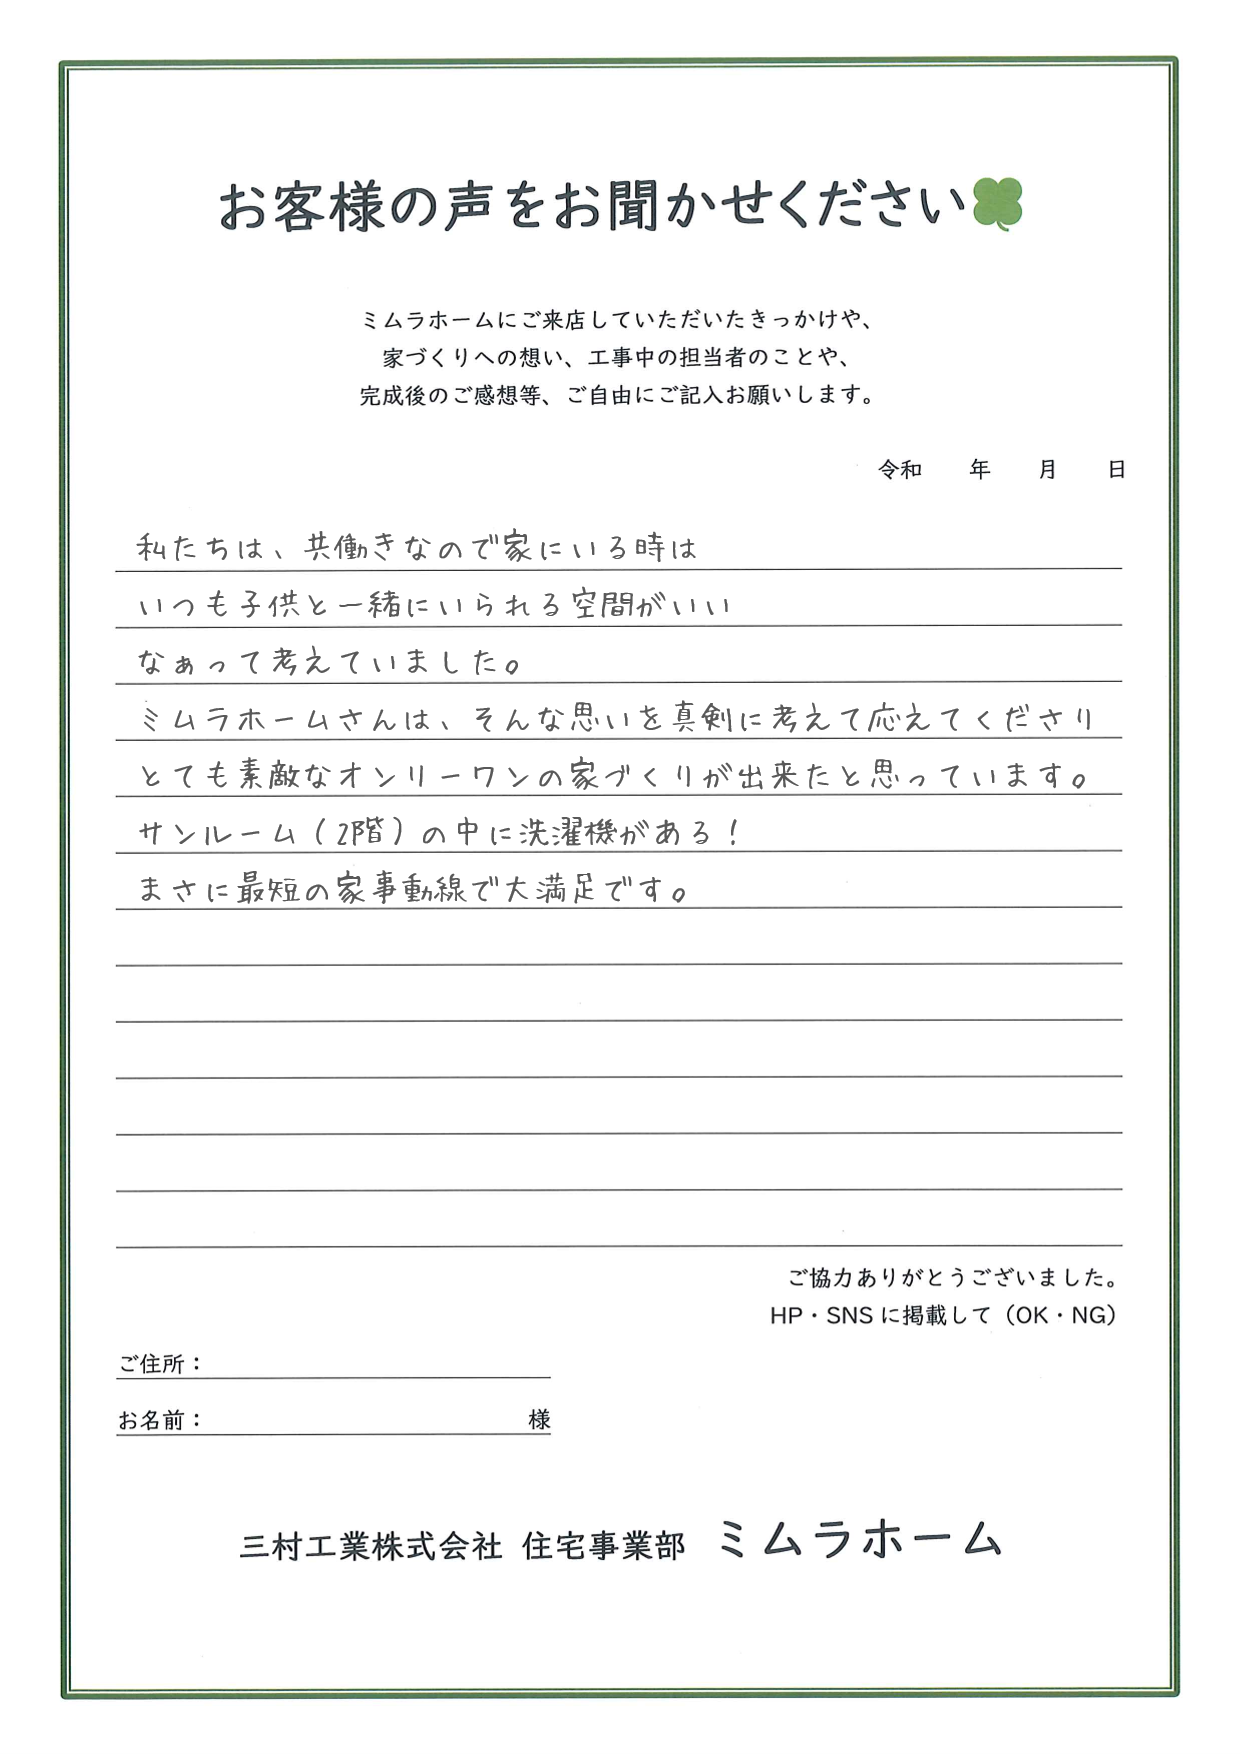 お客様の声をお聞かせください
ミムラホームにご来店していただいたきっかけや、
家づくりへの想い、工事中の担当者のことや、
完成後のご感想等、ご自由にご記入お願いします。
令和　　年　　月　　日
私たちは、共働きなので家にいる時は
いつも子供と一緒にいられる空間がいい
なぁって考えていました。
ミムラホームさんは、そんな思いを真剣に考えて応えてくださり
とても素敵なオンリーワンの家づくりが出来たと思っています。
サンルーム（2階）の中に洗濯機がある！
まさに最短の家事動線で大満足です。
ご協力ありがとうございました。
HP・SNSに掲載して（OK・NG）
ご住所：
お名前：　　　　　　　　　　　　　　様
三村工業株式会社 住宅事業部 ミムラホーム